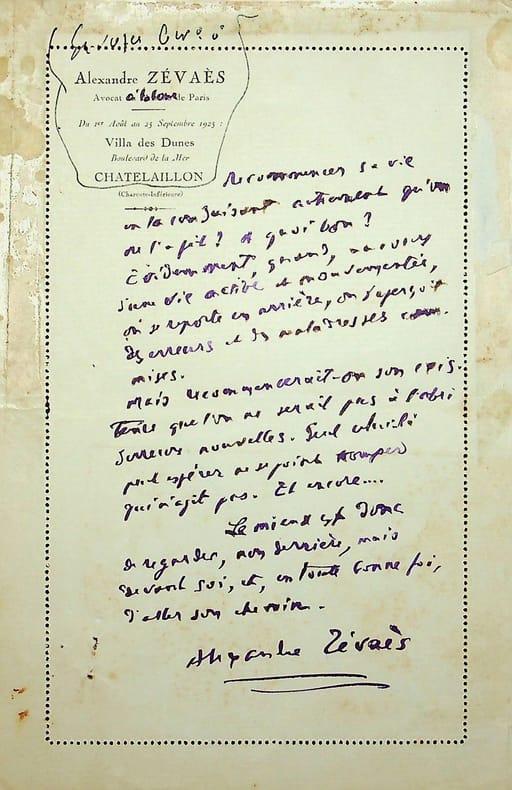 Alexandre ZÉVAÈS
Avocat à la Cour de Paris
Du 1er Août au 25 Septembre 1925 :
Villa des Dunes
Boulevard de la Mer
CHATELAILLON
(Charente-Inférieure)
Recommencer sa vie
en la conduisant autrement qu'on
ne l'a fait ? A quoi bon ?
Évidemment, quand, au cours
d'une vie active et mouvementée,
on se reporte en arrière, on s'aperçoit
des erreurs et des maladresses com-
mises.
Mais recommencerait-on son exis-
tence que l'on ne serait pas à l'abri
d'erreurs nouvelles. Seul celui-là
peut espérer ne se point tromper
qui n'agit pas. Et encore....
Le mieux est donc
de regarder, non derrière, mais
devant soi, et, en toute bonne foi,
d'aller son chemin.
Alexandre Zévaès